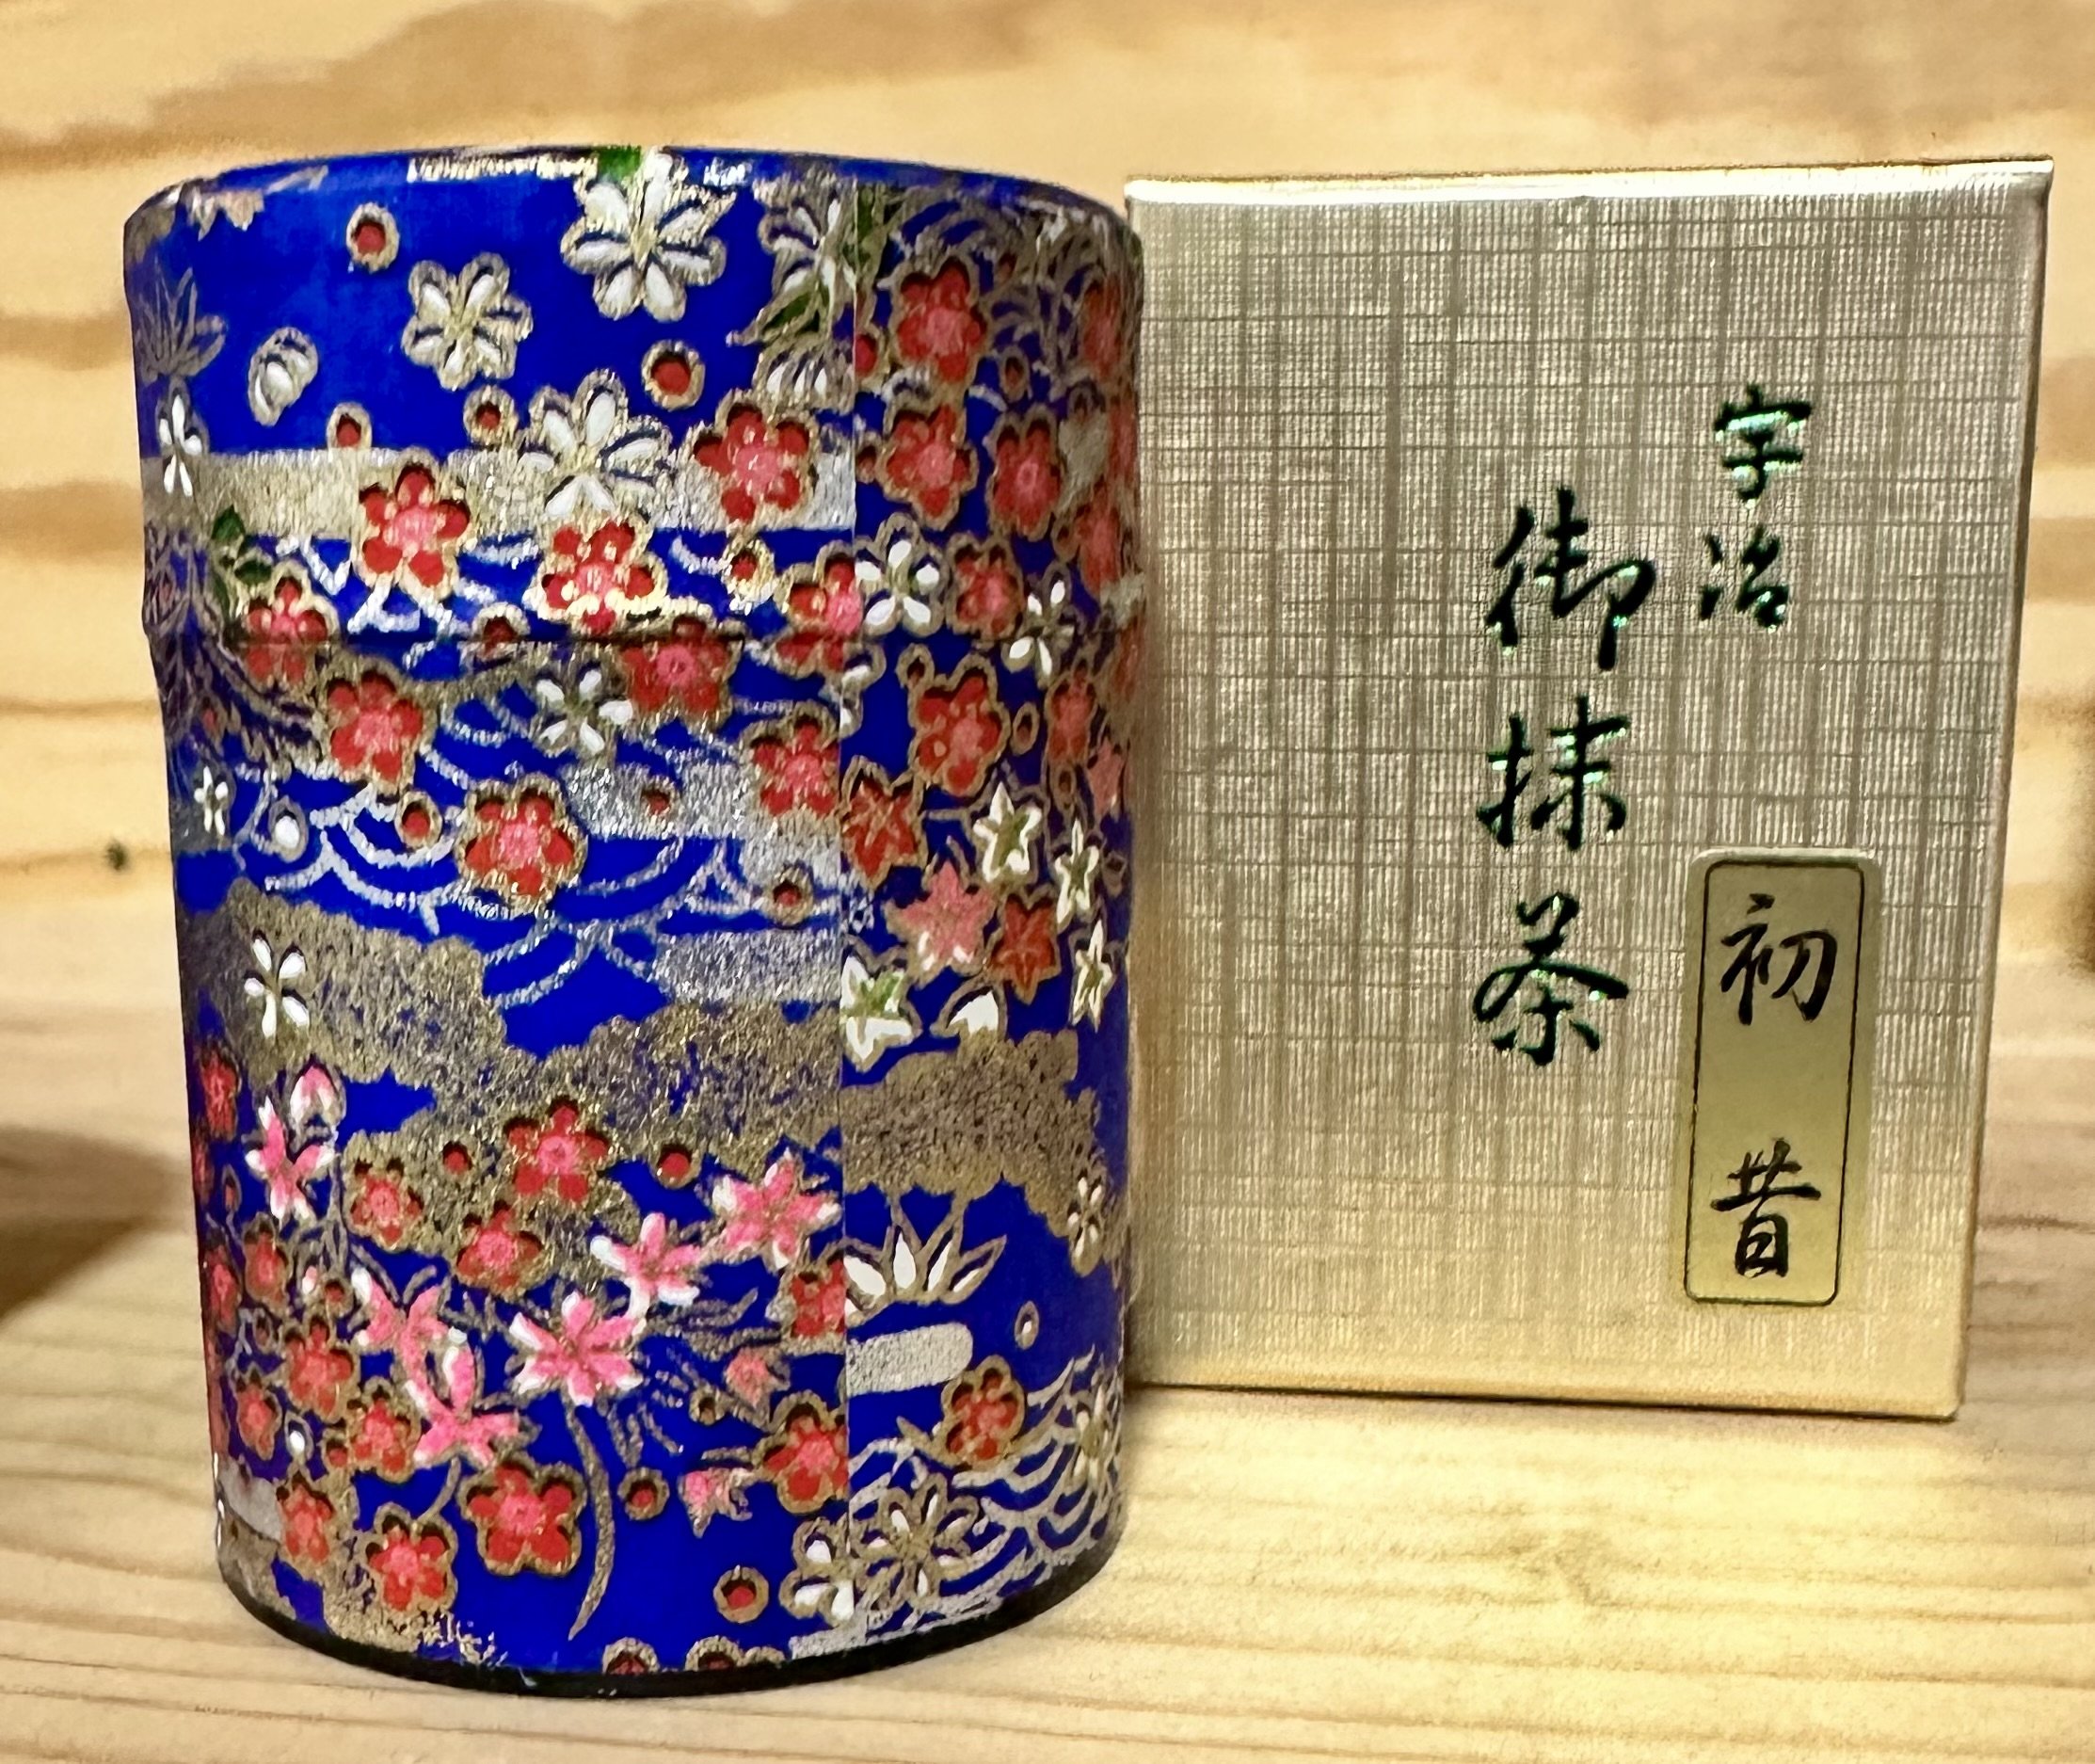 宇治
御抹茶
初昔